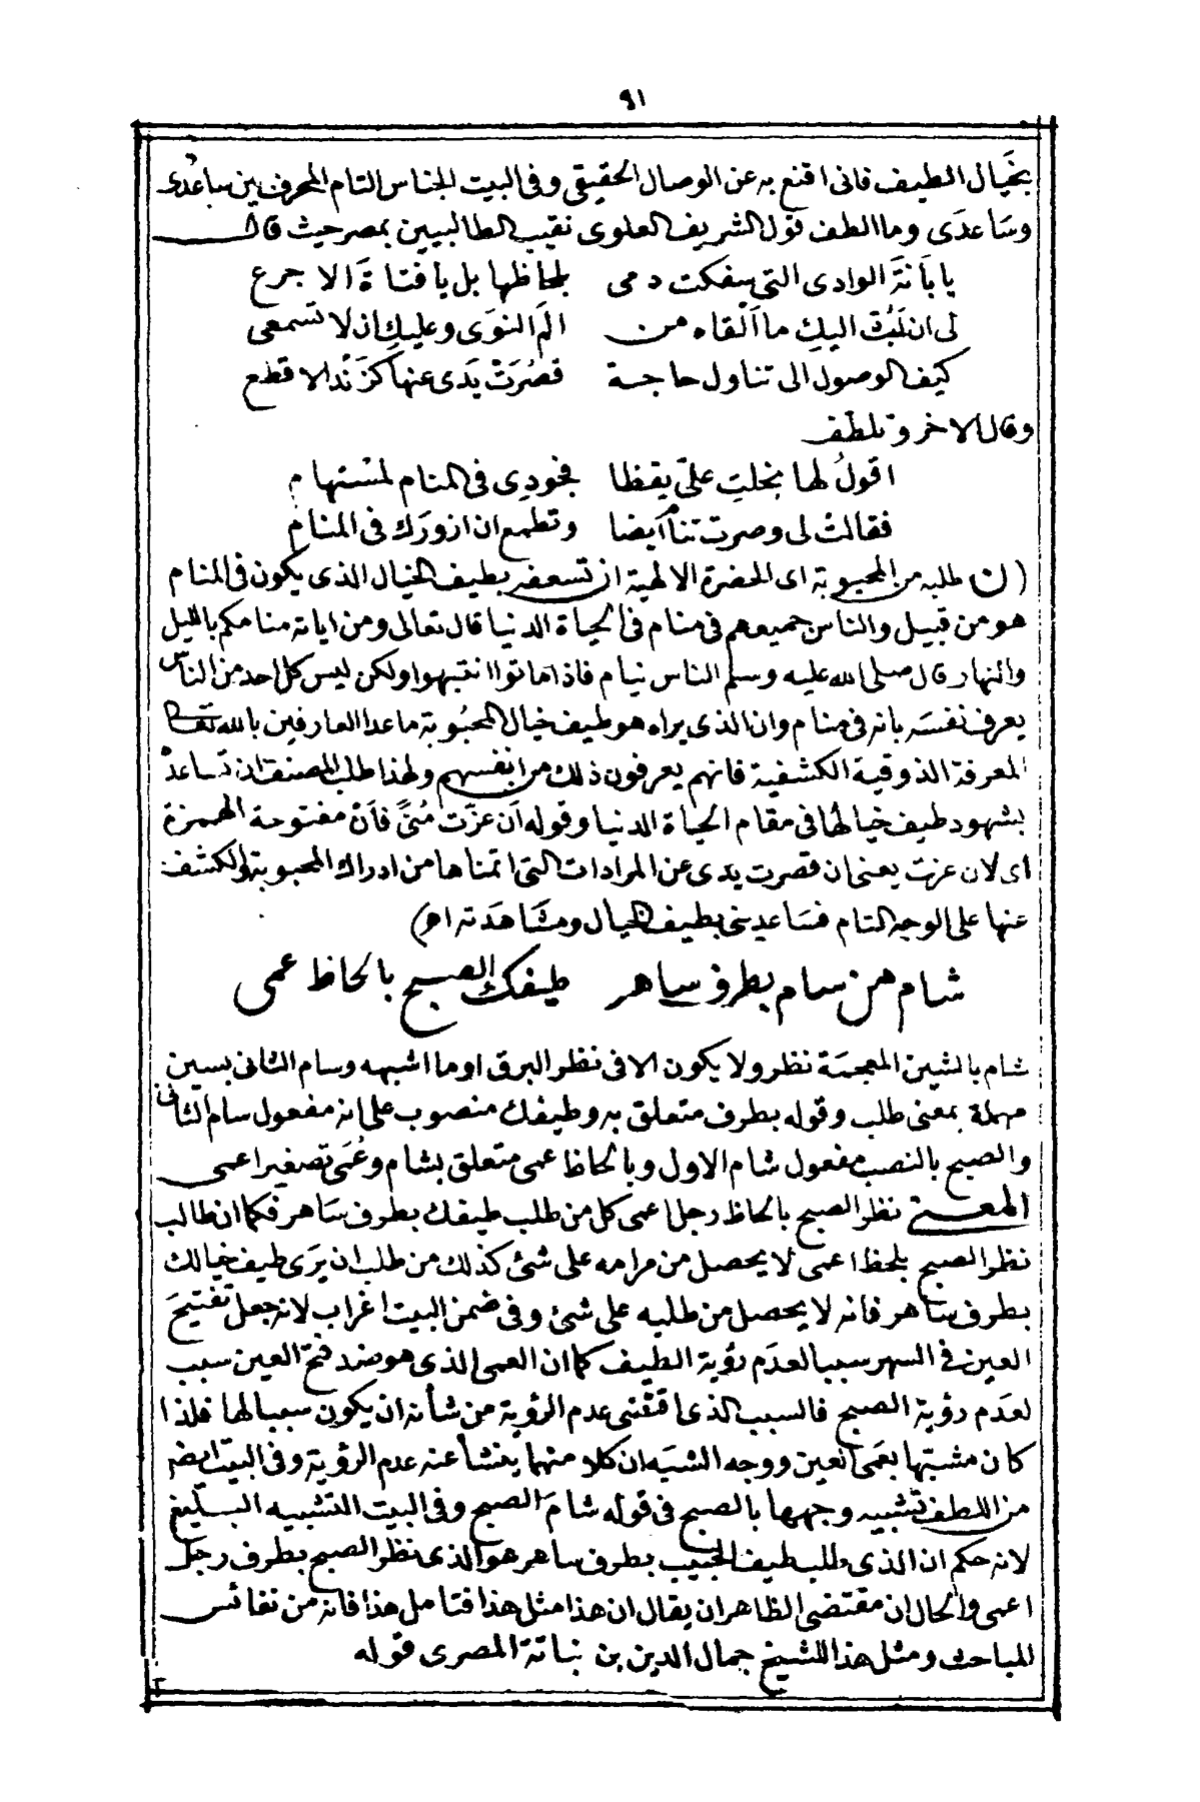 ٩١
بخَيال الطيف فانى اقنع به عن الوصال الحقيقى وفى البيت الجناس التام المحرف بين ساعُدى
وسَاعدَى وما الطف قول الشريف العلوى نقيب الطالبيين بمصر حيث قال
يا بَانَةَ الوادى التى سفكت دمى بلحاظها بل يا فتاةَ الاجرع
لى ان اَبُثَّ اليكِ ما اَلْقاه من الَم النوَى وعليكِ ان لا تسمعى
كيف الوصول الى تناول حاجة قصُرَتْ يَدى عنها كزَنْد الاقطع
وقال الاخر وتلطف
اقولُ لها بخلتِ علىّ يقظا فجودِى فى المنام لمستهام
فقالتْ لى وصرت تنامُ اَيضا وتطمع ان ازورَك فى المنام
(ن) طلبه من المحبوبة اى الحضرة الالهية ان تسعفه بطيف الخيال الذى يكون فى المنام
هو من قبيل والناس جميعهم فى منام فى الحياة الدنيا قال تعالى ومن اياته منامكم بالليل
والنهار قال صلى الله عليه وسلم الناس نيام فاذا ماتوا انتبهوا ولكن ليس كل احد من الناس
يعرف نفسَه بانه فى منام وان الذى يراه هو طيف خيال المحبُوبة ماعدا العارفين بالله تعالى
المعرفة الذوقية الكشفية فانهم يعرفون ذلك من انفسهم ولهذا طلب المصنف ان تساعدْ
بشهود طيف خيالها فى مقام الحياة الدنيا وقوله اَن عزّت مُنًى فاَنْ مفتوحة الهمزة
اى لان عزت يعنى ان قصرت يدى عن المرادات التى اتمناها من ادراك المحبوبة والكشف
عنها على الوجه التام فسَاعدينى بطيف الخيال ومشَاهدَته اه)
شام من سام بطرف ساهر طيفك الصبح بالحاظ عمى
شام بالشين المعجمَة نظر ولا يكون الا فى نظر البرق او ما اشبهه وسام الثانى بسين
مهملة بمعنى طلب وقوله بطرف متعلق به وطيفك منصوب على انه مفعول سام الثانى
والصبح بالنصب مفعول شام الاول وبالحاظ عمى متعلق بشام وعُمَى تصغير اعمى
المعنى نظر الصبح بالحاظ رجل اعمى كل من طلب طيفك بطرف سَاهر فكما ان طالب
نظر الصبح بلحظ اعمى لا يحصل من مرامه على شئ كذلك من طلب ان يَرَى طيف خيالك
بطرف ساهر فانه لا يحصل من طلبه على شئ وفى ضمن البيت اغراب لانه جعل تفتيحَ
العين فى السهر سببا لعدَم رؤية الطيف كما ان العمى الذى هو ضد فتح العين سبب
لعدَم رؤية الصبح فالسبب الذى اقتضى عدم الرؤية من شأنه ان يكون سببا لها فلذا
كان مشبّها بعمَى العين ووجه الشبَه ان كلا منهما ينشأ عنه عدم الرؤية وفى البيت ايضا
من اللطف تشبيه وجهها بالصبح فى قوله شامَ الصبح وفى البيت التشبيه البليغ
لانه حكم ان الذى طلب طيف الحبيب بطرف ساهر هو الذى نظر الصبح بطرف رجل
اعمى والحال ان مقتضى الظاهر ان يقال ان هذا مثل هذا فتامل هذا فانه من نفائس
المباحث ومثل هذا للشيخ جمال الدين بن نباتة المصرى قوله